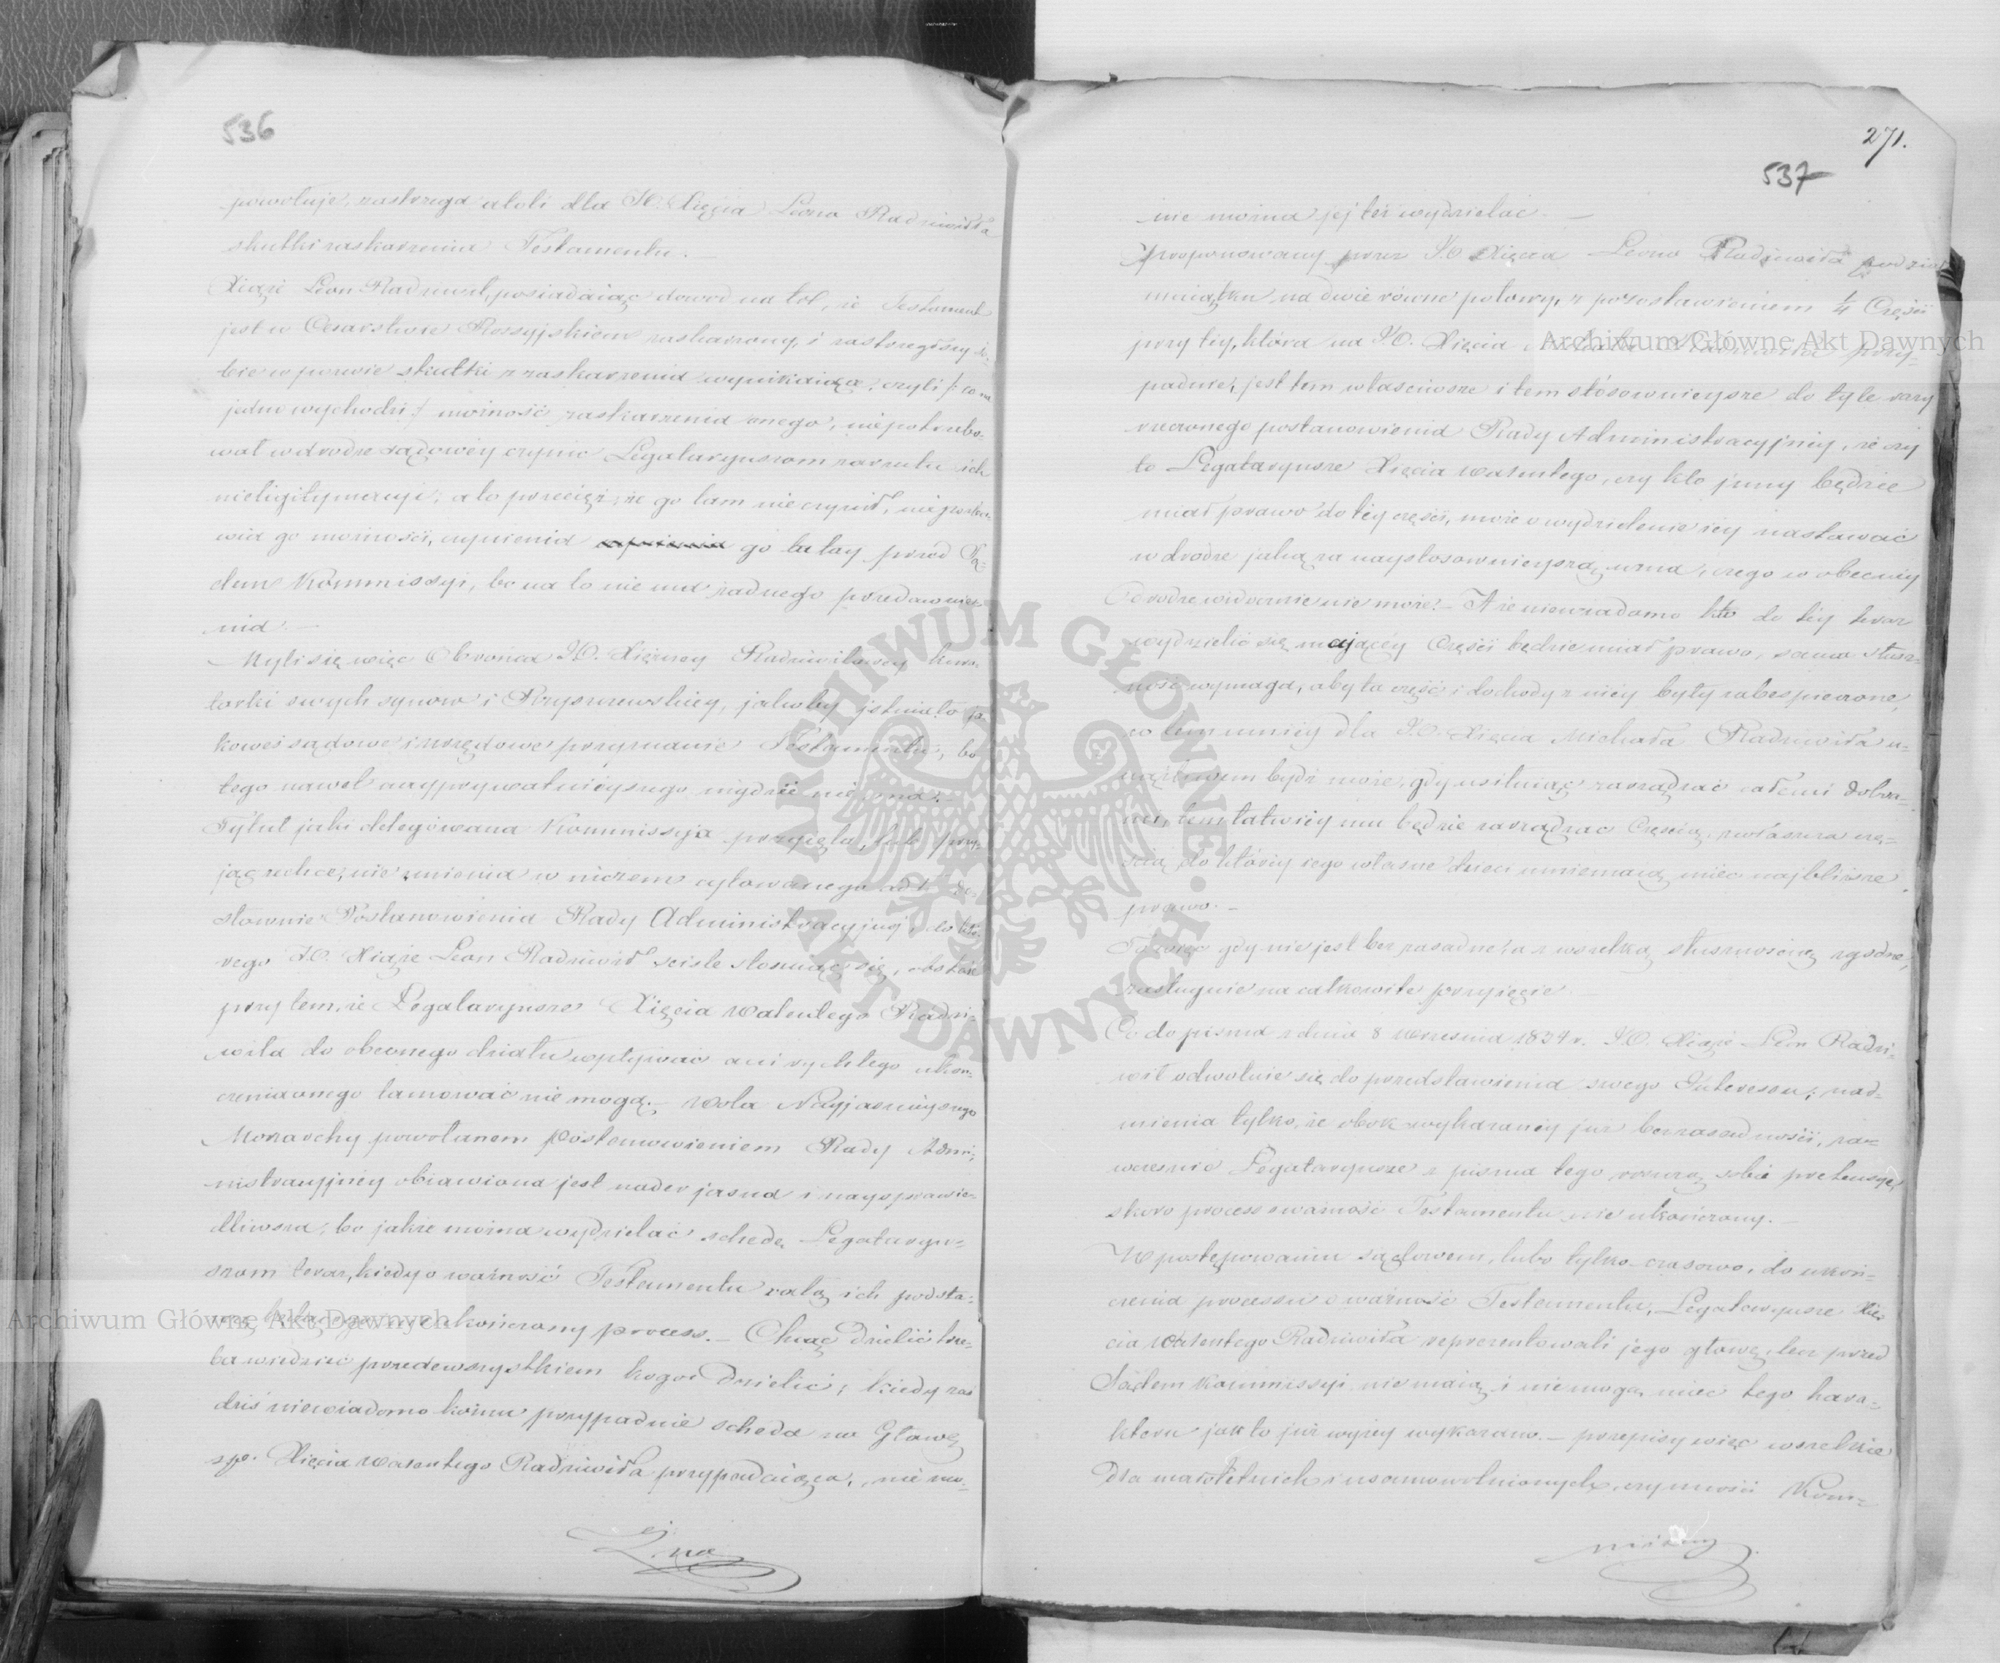 536
powołuje, zastrzega atoli dla JO. Xięcia Leona Radziwiłła
skutki zaskarżenia Testamentu. —
Xiąże Leon Radziwiłł, posiadaiąc dowod na to, że Testament
jest w Cesarstwie Rossyjskiem zaskarżony, i zastrzegłszy so-
bie w pozwie skutki z zaskarżenia wynikaiące, czyli /: co na
jedno wychodzi :/ możność zaskarżenia onego, niepotrzebo-
wał w drodze sądowéy czynić Legataryuszom zarzutu ich
nieligitymacyi; a to przecięż że go tam nie czynił, niepozba-
wia go możności, czynienia go tutay przed Są-
dem Kommissyi, bo na to nie ma żadnego przedawnie-
nia. —
Myli się więc Obrońca JO. Xiężney Radziwiłłowey kura-
torki swych synow i Ryszczewskiey, jakoby istniało ja-
koweś sądowe i urzędowe przyznanie Testamentu, bo
tego nawet nayprywatnieyszego nigdzie nie ma. —
Tytuł jaki delegowana Kommissyja przyięła, lub przy-
jąć zechce, nie zmienia w niczem cytowanego
słownie Postanowienia Rady Administracyjnej, do któ-
rego JO. Xiąże Leon Radziwiłł ściśle stosuiąc się, obstaie
przy tem, że Legataryusze Xięcia Walentego Radzi-
wiła do obecnego działu wpływać ani rychłego ukoń-
czenia onego tamować nie mogą. — Wola Nayjaśnieyszego
Monarchy powołanem postanowieniem Rady Admi-
nistracyjnéy obiawiona jest nader jasna i naysprawie-
dliwsza; bo jakże można wydzielać schedę Legataryu-
szom teraz, kiedy o ważność Testamentu całą ich podsta-
wę nieukończony process. — Chcąc dzielić trze-
ba wiedzieć przedewszystkiem kogo dzielić; kiedy zaś
dziś niewiadomo komu przypadnie scheda na Głowę
ś.p. Xięcia Walentego Radziwiłła przypadaiąca, nie mo-
żna
271.
537
nie można jej téż wydzielać. —
Proponowany przez JO. Xięcia Leona Radziwiłła podział
maiątku na dwie równe połowy, z pozostawieniem 1/4 Części
przy téy, która na JO. Xięcia Michała Radziwiłła przy-
padnie, jest tem właściwsze i tem stósownieysze do tyle razy
rzeczonego postanowienia Rady Administracyjnéy, że czy
to Legataryusze Xięcia Walentego, czy kto inny będzie
miał prawo do téy części, może o wydzielenie iéy nastawać
w drodze jaką za naystosownieyszą uzna, czego w obecnéy
drodze widocznie nie może. — A że niewiadomo kto do téy teraz
wydzielić się mającéy Części będzie miał prawo, sama słusz-
ność wymaga, aby ta część i dochody z niéy były zabespieczone,
co tem mniéy dla JO. Xięcia Michała Radziwiłła u-
ciążliwem bydź może, gdy usiłuiąc zarządzać całemi dobra-
mi, tem łatwiéy mu będzie zarządzać Częścią, zwłaszcza czę-
ścią, do któréy iego własne dzieci mniemaią mieć najbliższe
prawo. —
To więc gdy nie jest bezzasadne, a z wszelką słusznością zgodne,
zasługuie na całkowite przyjęcie. —
Co do pisma z dnia 8 Września 1834 r. JO. Xiąże Leon Radzi-
wił odwołuie się do przedstawienia swego Interessu; nad-
mienia tylko, że obok wykazanéy już bezzasadności, za-
wcześnie Legataryusze z pisma tego roszczą sobie pretensye,
skoro process o ważność Testamentu nie ukończony. —
W postępowaniu sądowem, lubo tylko czasowo, do ukoń-
czenia processu o ważność Testamentu, Legataryusze Xię-
cia Walentego Radziwiłła reprezentowali jego głowę, lecz przed
Sądem Kommissyi nie maią i nie mogą mieć tego chara-
kteru jak to już wyżéy wykazano. — przepisy więc wszelkie
dla małoletnich i usamowolnionych, czynności Kom-
missyi
Archiwum Główne Akt Dawnych
Archiwum Główne Akt Dawnych
ARCHIWUM GŁÓWNE · AKT DAWNYCH ·